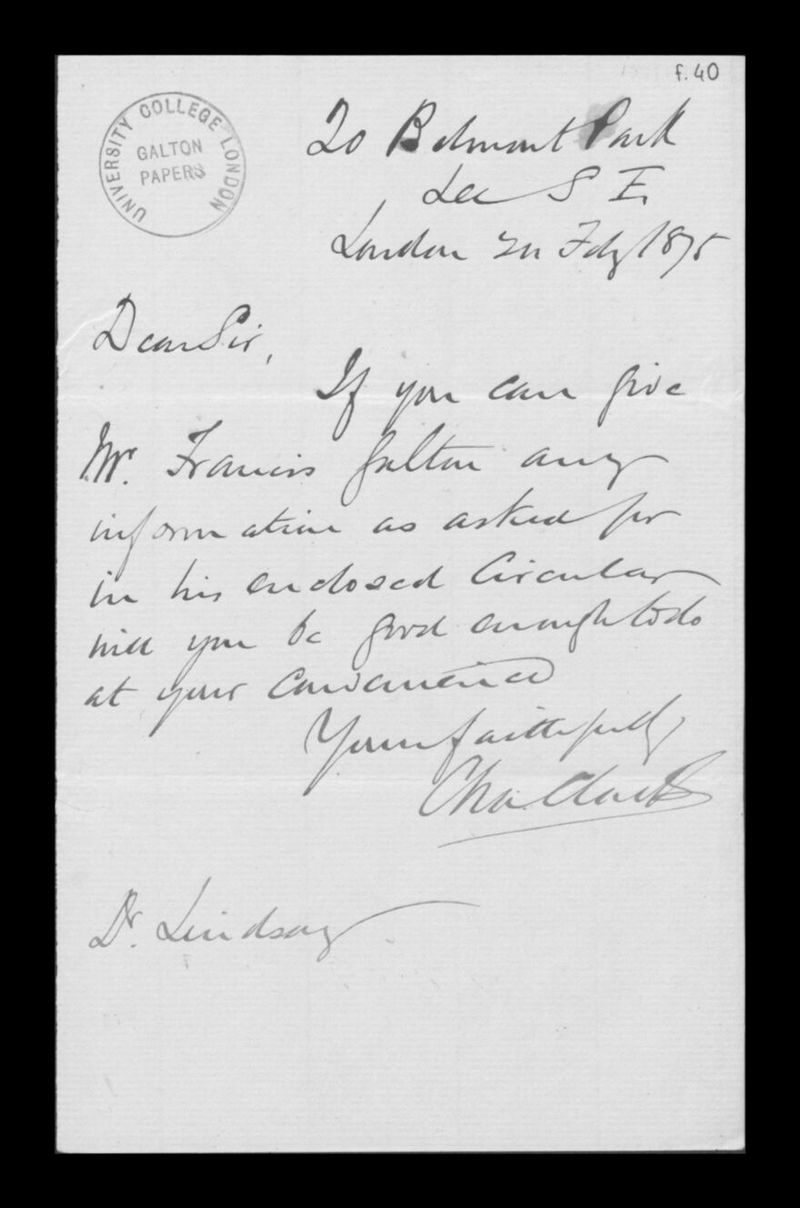 f.40
UNIVERSITY COLLEGE LONDON
GALTON
PAPERS
20 Belmont Park
Lee S E.
London Feby 1875
Dear Sir,
If you can give
Mr. Francis Galton any
information as asked for
in his enclosed Circular
will you be good enough to do
at your convenience
Yours faithfully
Chas Clark
Dr. Lindsay